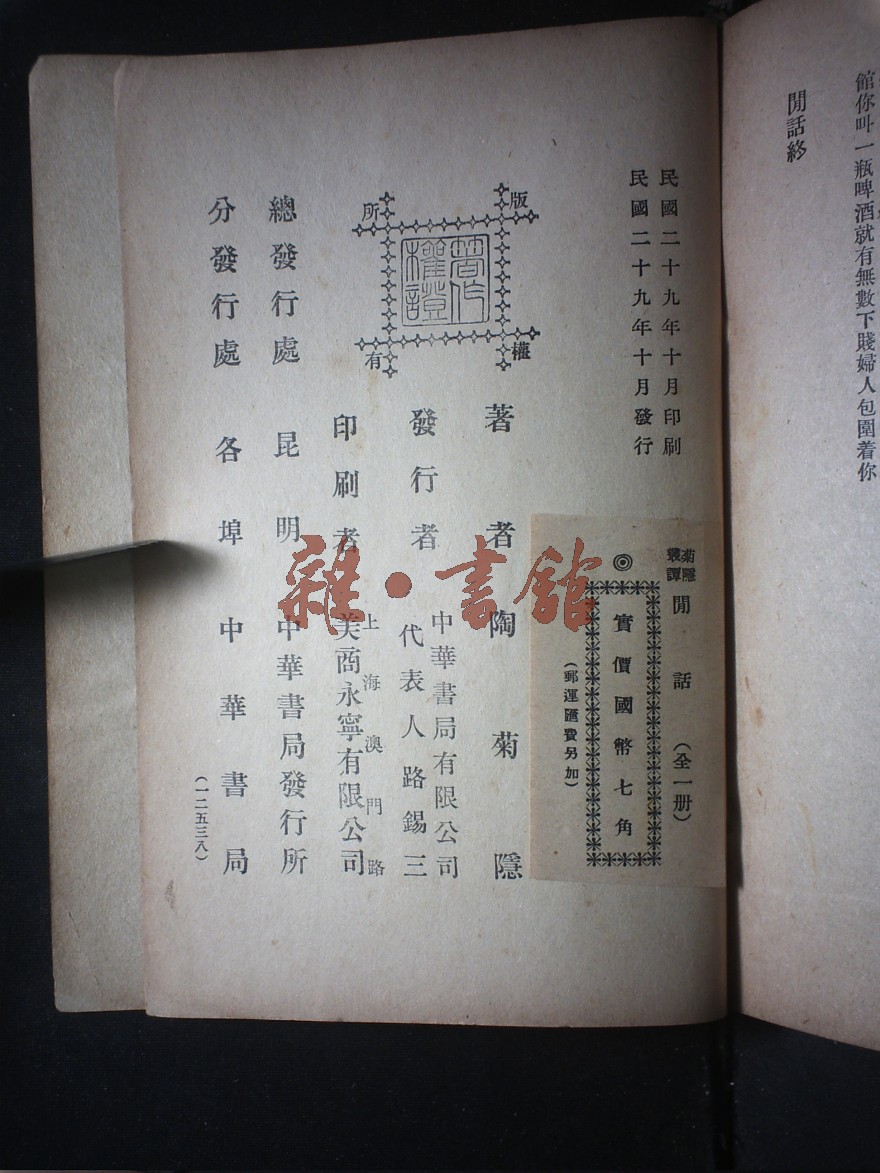 館你叫一瓶啤酒就有無數下賤婦人包圍着你
閒話終
民國二十九年十月印刷
民國二十九年十月發行
菊隱
叢譚
閒話
（全一册）
◎
實價國幣七角
（郵運匯費另加）
版權所有
著作
權登記
著者 陶菊隱
發行者
中華書局有限公司
代表人路錫三
印刷者
上海澳門路
美商永寧有限公司
總發行處 昆明 中華書局發行所
分發行處 各埠 中華書局
（一二五三八）
雜·書館